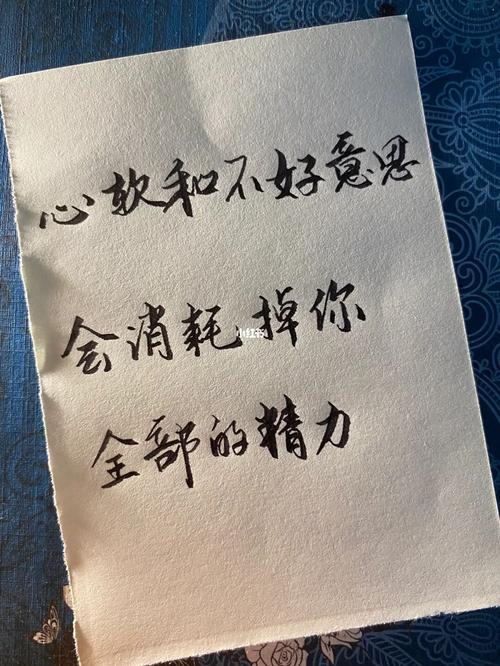 心软和不好意思
会消耗掉你
小红书
全部的精力